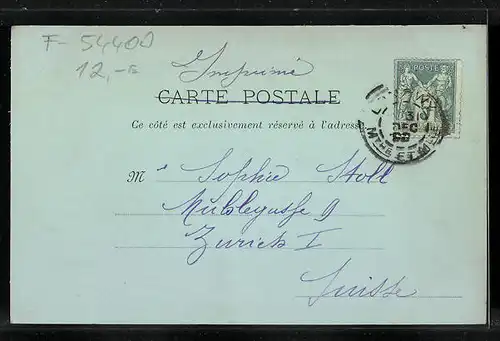 F-54400
12,-
Imprimé
CARTE POSTALE
Ce côté est exclusivement réservé à l'adresse
POSTE
DEC
M Sophie Stoll
Mühlegasse 9
Zurich I
Suisse